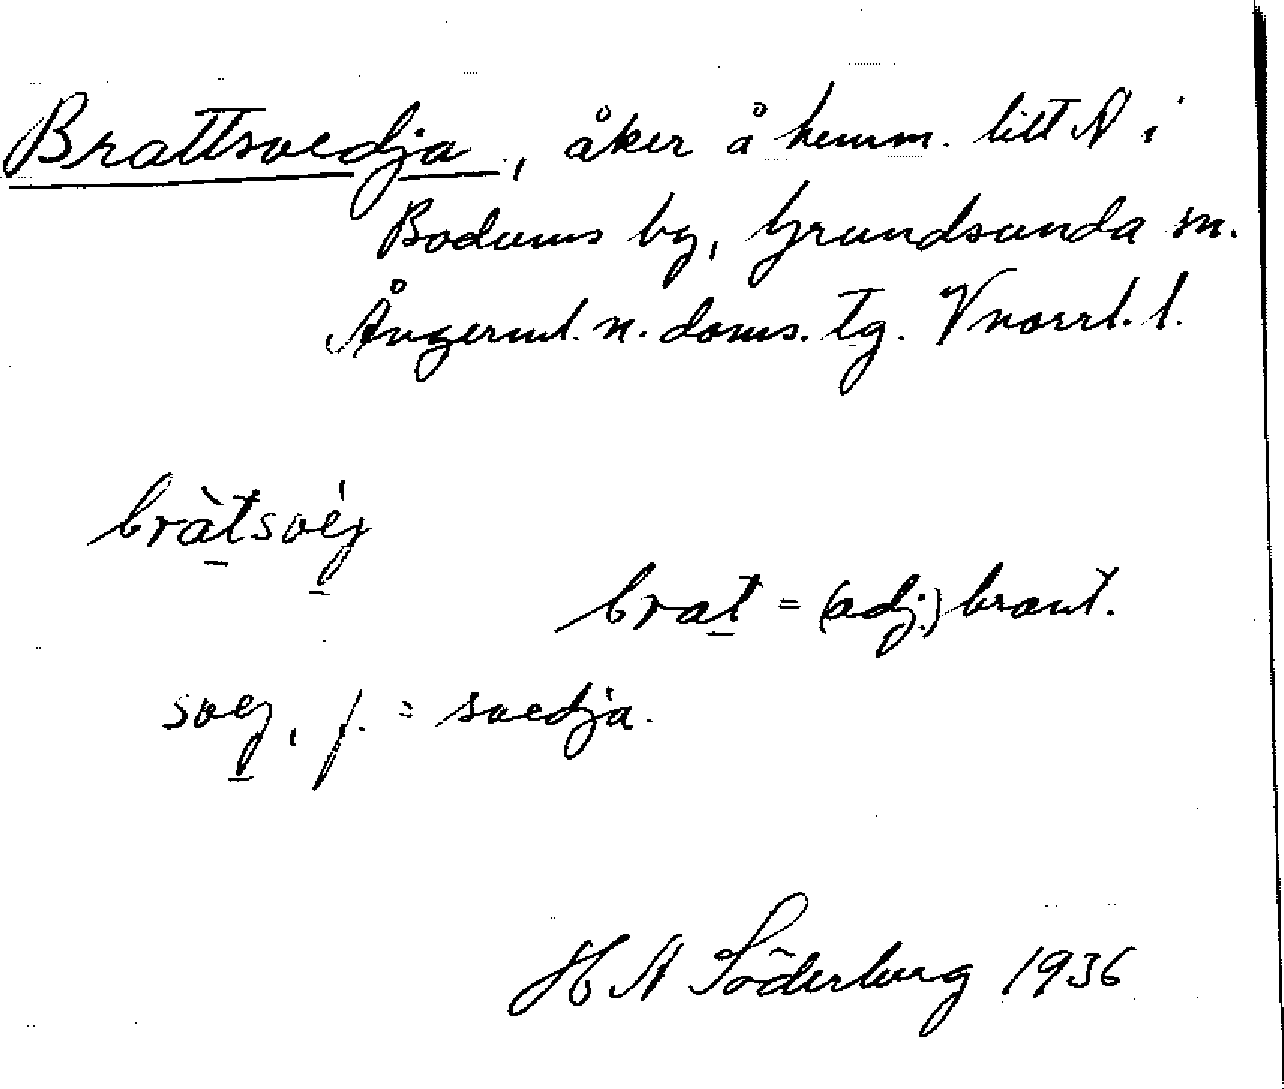 Brattsvedja, åker å hemm. litt A i
Bodums by, Grundsunda sn.
Ångerml. n. doms. tg. Vnorrl. l.
bràtsvéj
brat = (adj.) brant.
svej, f. = svedja.
H A Söderberg 1936